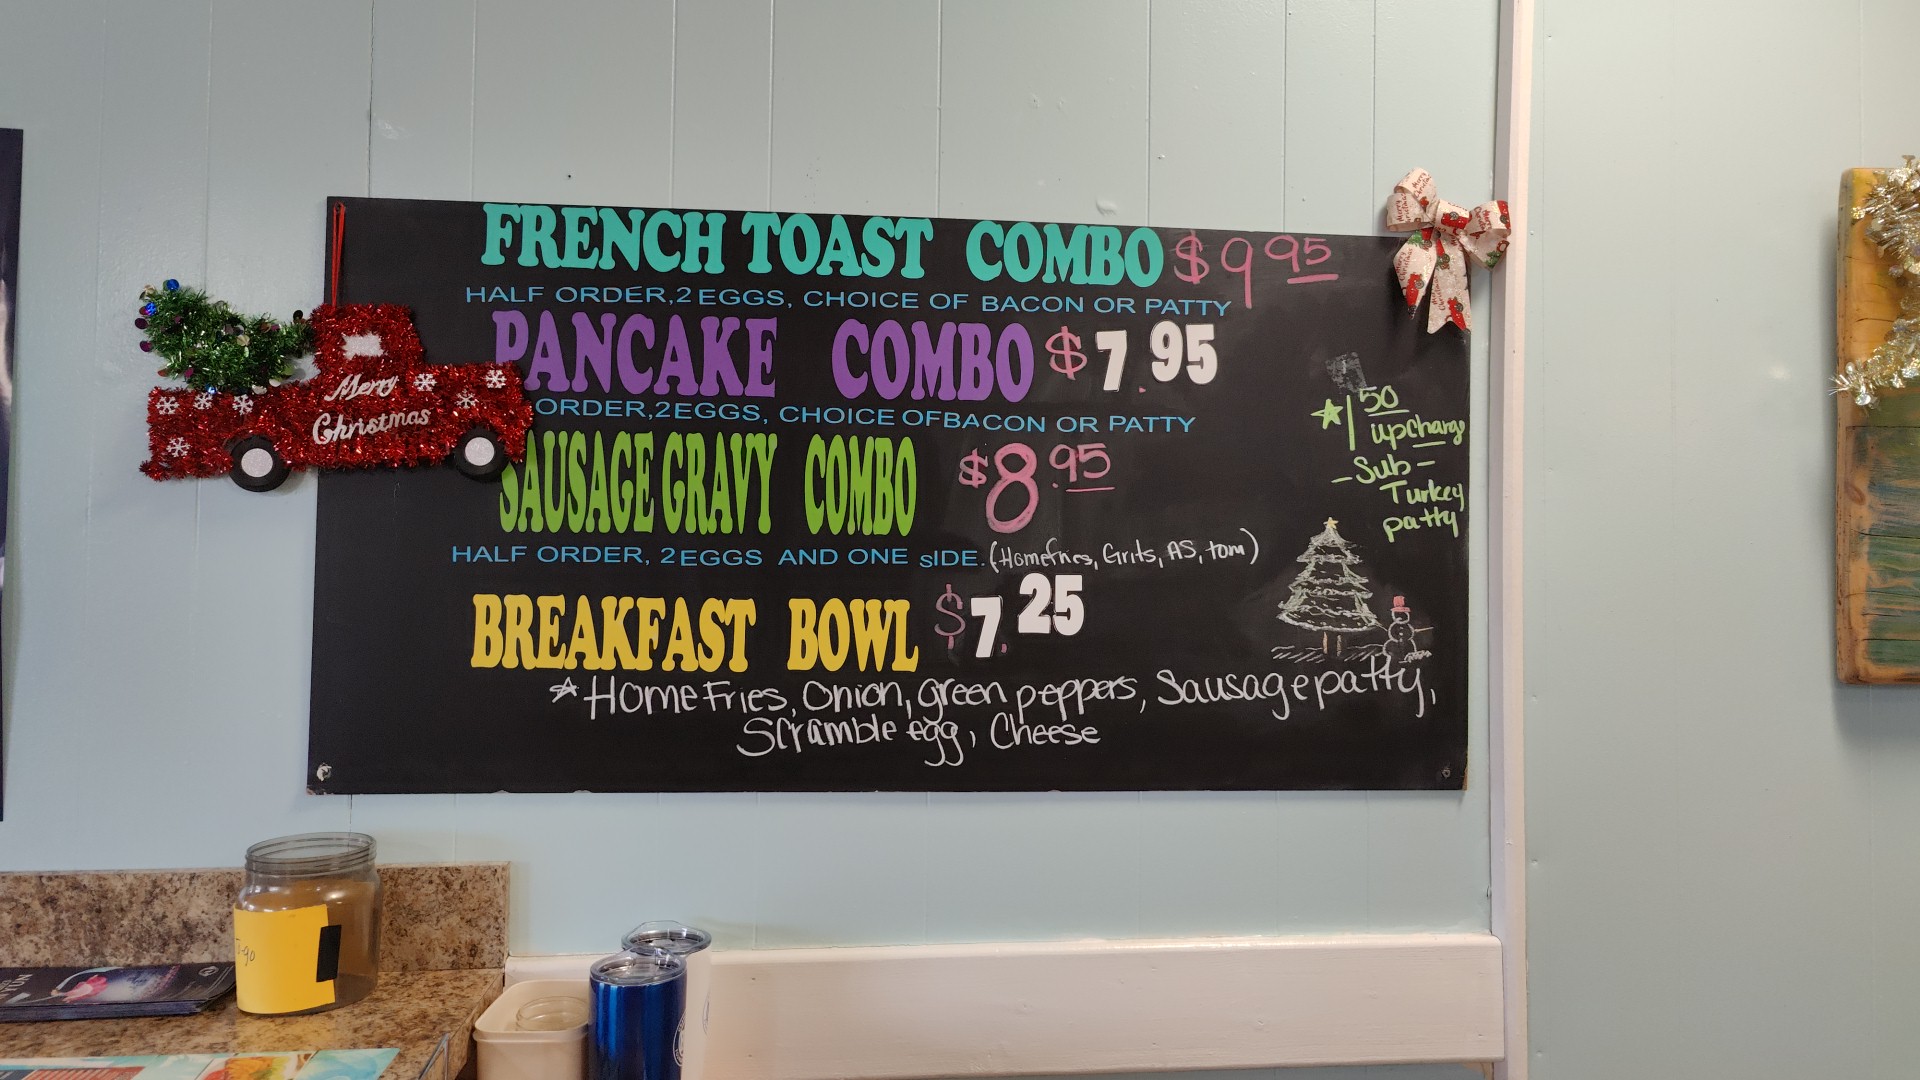 FRENCH TOAST COMBO $9 95
HALF ORDER, 2 EGGS, CHOICE OF BACON OR PATTY
PANCAKE COMBO $7.95
ORDER, 2 EGGS, CHOICE OF BACON OR PATTY
SAUSAGE GRAVY COMBO $8.95
HALF ORDER, 2 EGGS AND ONE SIDE. (Homefries, Grits, AS, tom)
BREAKFAST BOWL $7.25
*Home Fries, Onion, green peppers, Sausage patty,
Scramble egg, Cheese
1 50
upcharg
-Sub-
Turkey
patty
Merry
Christmas